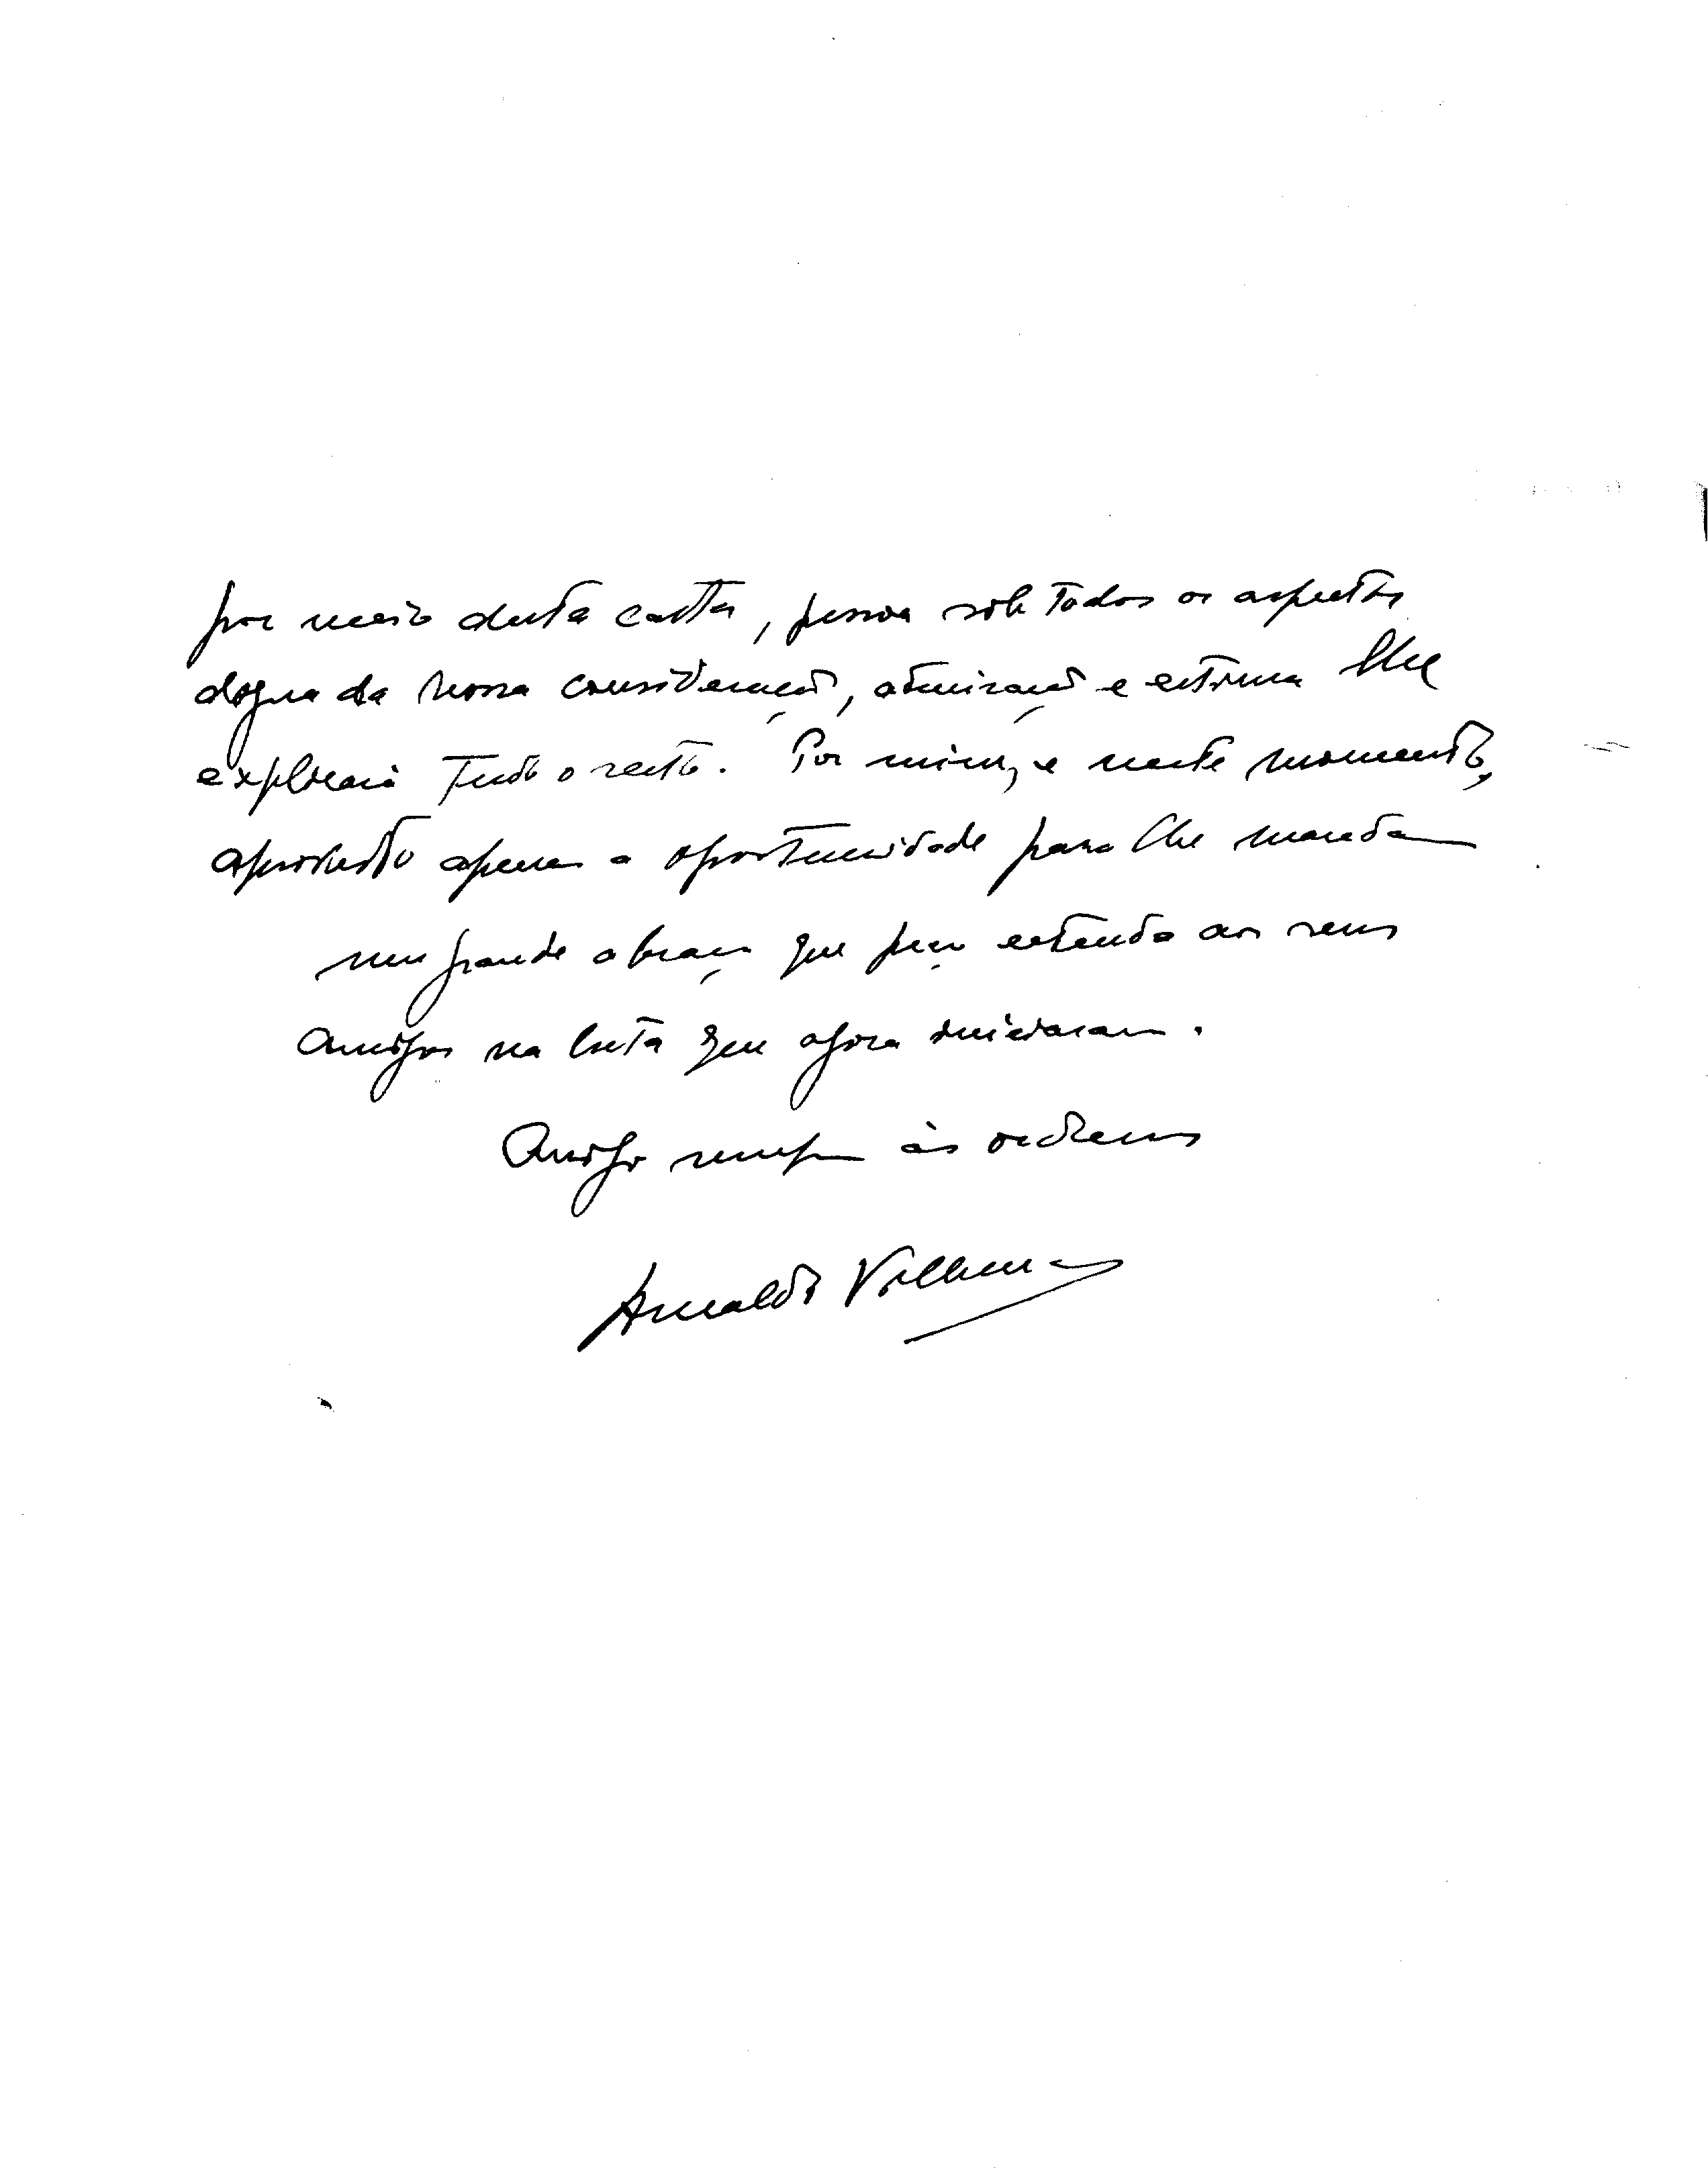 por meio desta carta, pessoa sob todos os aspectos
digna da nossa consideração, admiração e estima lhe
explicará tudo o resto. Por mim, e neste momento,
aproveito apenas a oportunidade para lhe mandar
um grande abraço que peço estenda aos seus
amigos na luta que agora iniciaram.
Amigo sempre às ordens
Arnaldo Vilhena